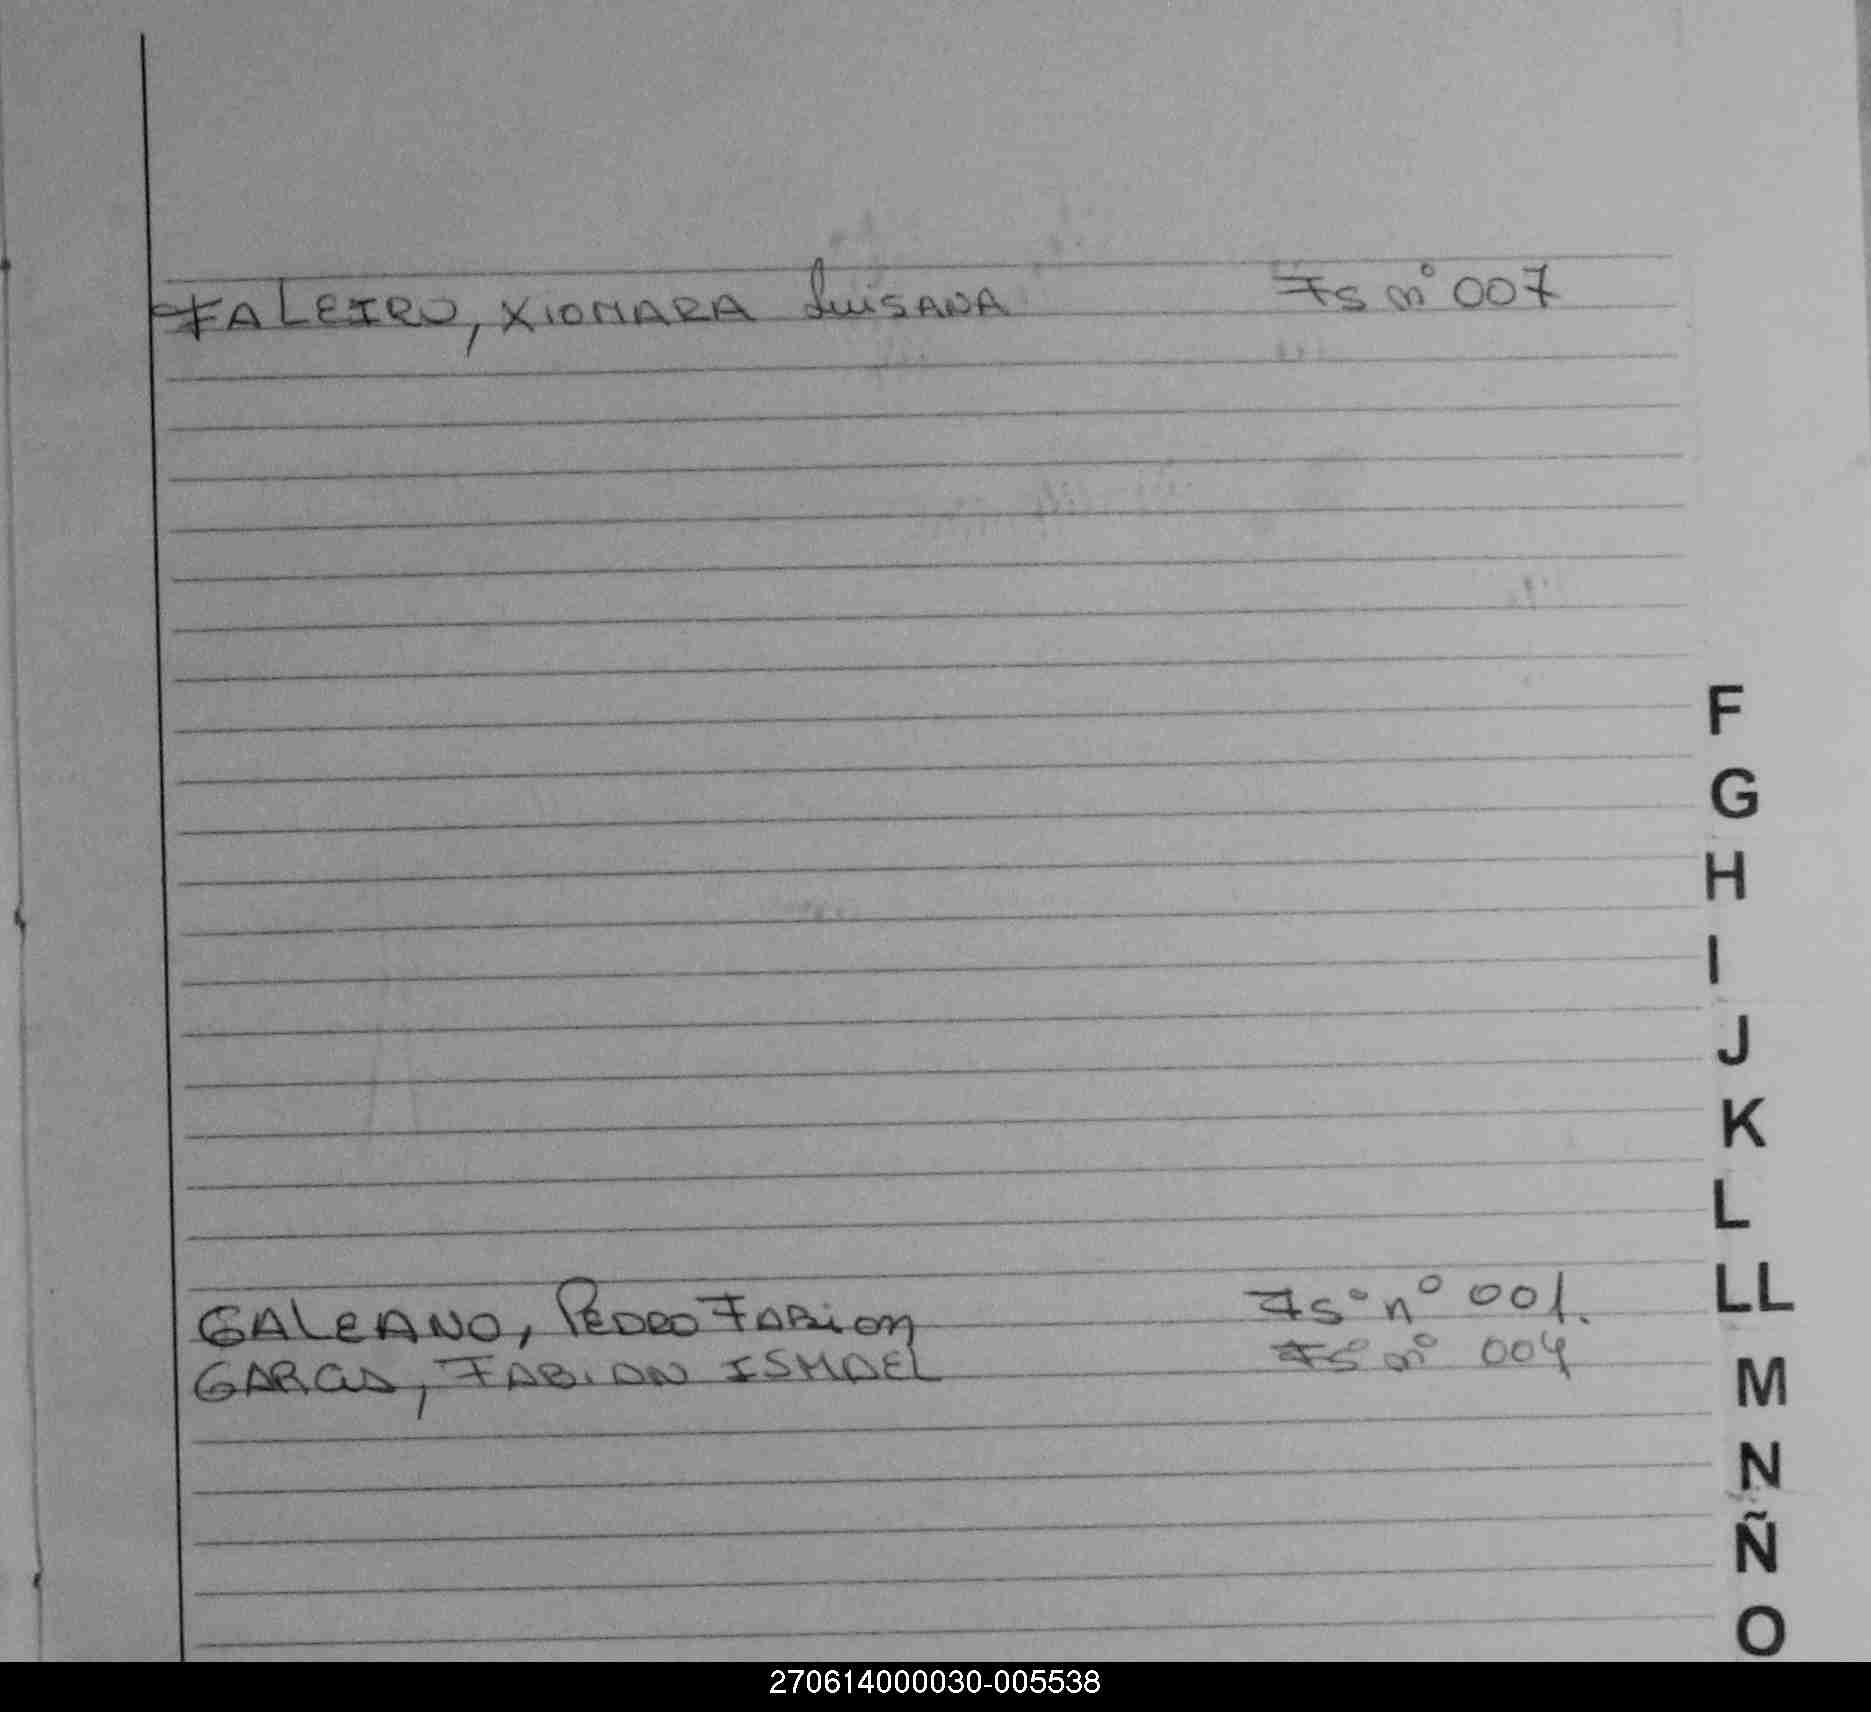 FALEIRO, XIOMARA LUISANA Fs nº 007
F
G
H
I
J
K
L
GALEANO, PEDRO FABIAN Fsº nº 001.
LL
GARCIA, FABIAN ISMAEL Fsº nº 004
M
N
Ñ
O
270614000030-005538